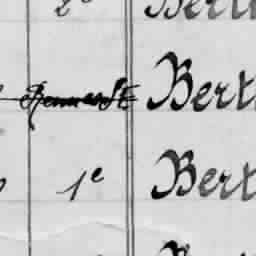 2e Bert
Bert
1e Bert